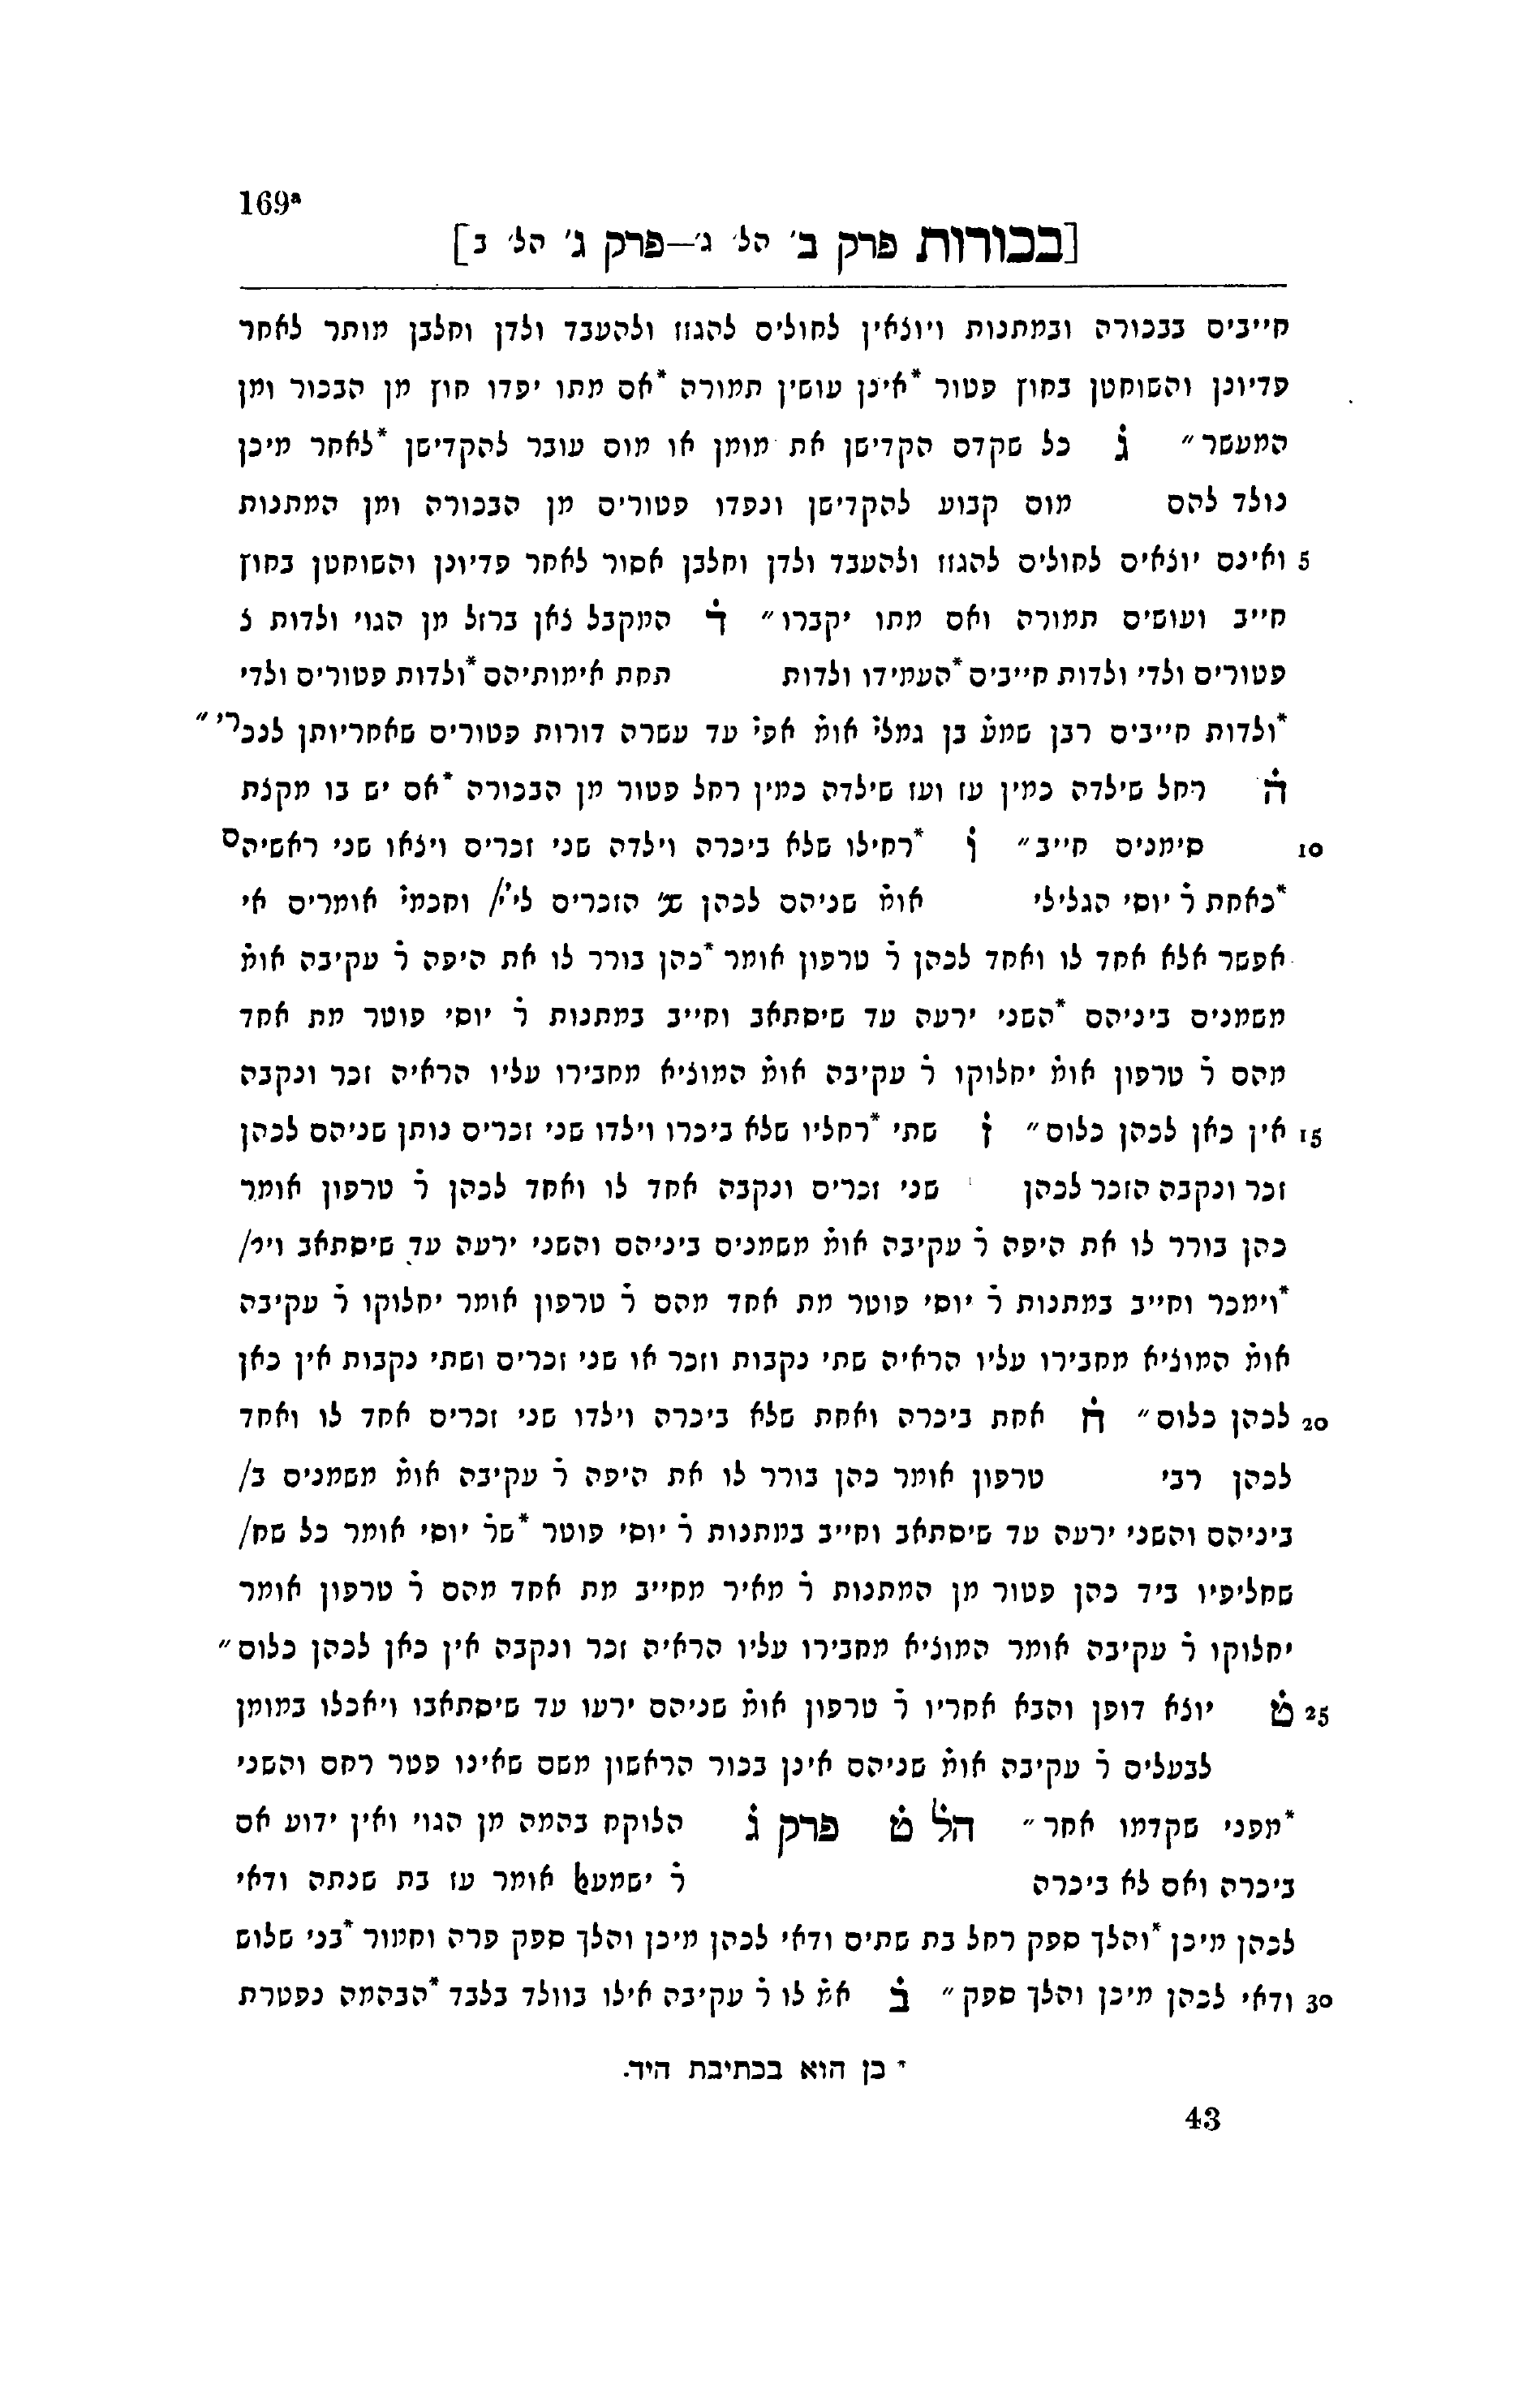 169ª
[בכורות פרק ב' הל' ג'—פרק ג' הל' ב]
חייבים בבכורה ובמתנות ויוצאין לחולים להגזז ולהעבד ולדן וחלבן מותר לאחר
פדיונן והשוחטן בחוץ פטור *אינן עושין תמורה *אם מתו יפדו חוץ מן הבכור ומן
המעשר״ ג̇ כל שקדם הקדישן את מומן או מום עובר להקדישן *לאחר מיכן
נולד להם מום קבוע להקדישן ונפדו פטורים מן הבכורה ומן המתנות
5 ואינם יוצאים לחולים להגזז ולהעבד ולדן וחלבן אסור לאחר פדיונן והשוחטן בחוץ
חייב ועושים תמורה ואם מתו יקברו״ ד̇ המקבל צאן ברזל מן הגוי ולדות צ
פטורים ולדי ולדות חייבים *העמידו ולדות תחת אימותיהם *ולדות פטורים ולדי
*ולדות חייבים רבן שמע̇ בן גמלי̇ אומ̇ אפי̇ עד עשרה דורות פטורים שאחריותן לנכרי״
ה̇ רחל שילדה כמין עז ועז שילדה כמין רחל פטור מן הבכורה *אם יש בו מקצת
10 סימנים חייב״ ו̇ *רחילו שלא ביכרה וילדה שני זכרים ויצאו שני ראשיהם
*כאחת ר̇ יוסי הגלילי אומ̇ שניהם לכהן שנ' הזכרים ליי/ וחכמי̇ אומרים אי
אפשר אלא אחד לו ואחד לכהן ר̇ טרפון אומר *כהן בורר לו את היפה ר̇ עקיבה אומ̇
משמנים ביניהם *השני ירעה עד שיסתאב וחייב במתנות ר̇ יוסי פוטר מת אחד
מהם ר̇ טרפון אומ̇ יחלוקו ר̇ עקיבה אומ̇ המוציא מחבירו עליו הראיה זכר ונקבה
15 אין כאן לכהן כלום״ ז̇ שתי *רחליו שלא ביכרו וילדו שני זכרים נותן שניהם לכהן
זכר ונקבה הזכר לכהן שני זכרים ונקבה אחד לו ואחד לכהן ר̇ טרפון אומר
כהן בורר לו את היפה ר̇ עקיבה אומ̇ משמנים ביניהם והשני ירעה עד שיסתאב וימ/
*וימכר וחייב במתנות ר̇ יוסי פוטר מת אחד מהם ר̇ טרפון אומר יחלוקו ר̇ עקיבה
אומ̇ המוציא מחבירו עליו הראיה שתי נקבות וזכר או שני זכרים ושתי נקבות אין כאן
20 לכהן כלום״ ח̇ אחת ביכרה ואחת שלא ביכרה וילדו שני זכרים אחד לו ואחד
לכהן רבי טרפון אומר כהן בורר לו את היפה ר̇ עקיבה אומ̇ משמנים ב/
ביניהם והשני ירעה עד שיסתאב וחייב במתנות ר̇ יוסי פוטר *שר̇ יוסי אומר כל שח/
שחליפיו ביד כהן פטור מן המתנות ר̇ מאיר מחייב מת אחד מהם ר̇ טרפון אומר
יחלוקו ר̇ עקיבה אומר המוציא מחבירו עליו הראיה זכר ונקבה אין כאן לכהן כלום״
25 ט̇ יוצא דופן והבא אחריו ר̇ טרפון אומ̇ שניהם ירעו עד שיסתאבו ויאכלו במומן
לבעלים ר̇ עקיבה אומ̇ שניהם אינן בכור הראשון משם שאינו פטר רחם והשני
*מפני שקדמו אחר״ הל̇ ט̇ פרק ג̇ הלוקח בהמה מן הגוי ואין ידוע אם
ביכרה ואם לא ביכרה ר̇ ישמעאל אומר עז בת שנתה ודאי
לכהן מיכן *והלך ספק רחל בת שתים ודאי לכהן מיכן והלך ספק פרה וחמור *בני שלוש
30 ודאי לכהן מיכן והלך ספק״ ב̇ אמ̇ לו ר̇ עקיבה אילו בוולד בלבד *הבהמה נפטרת
* כן הוא בכתיבת היד.
43